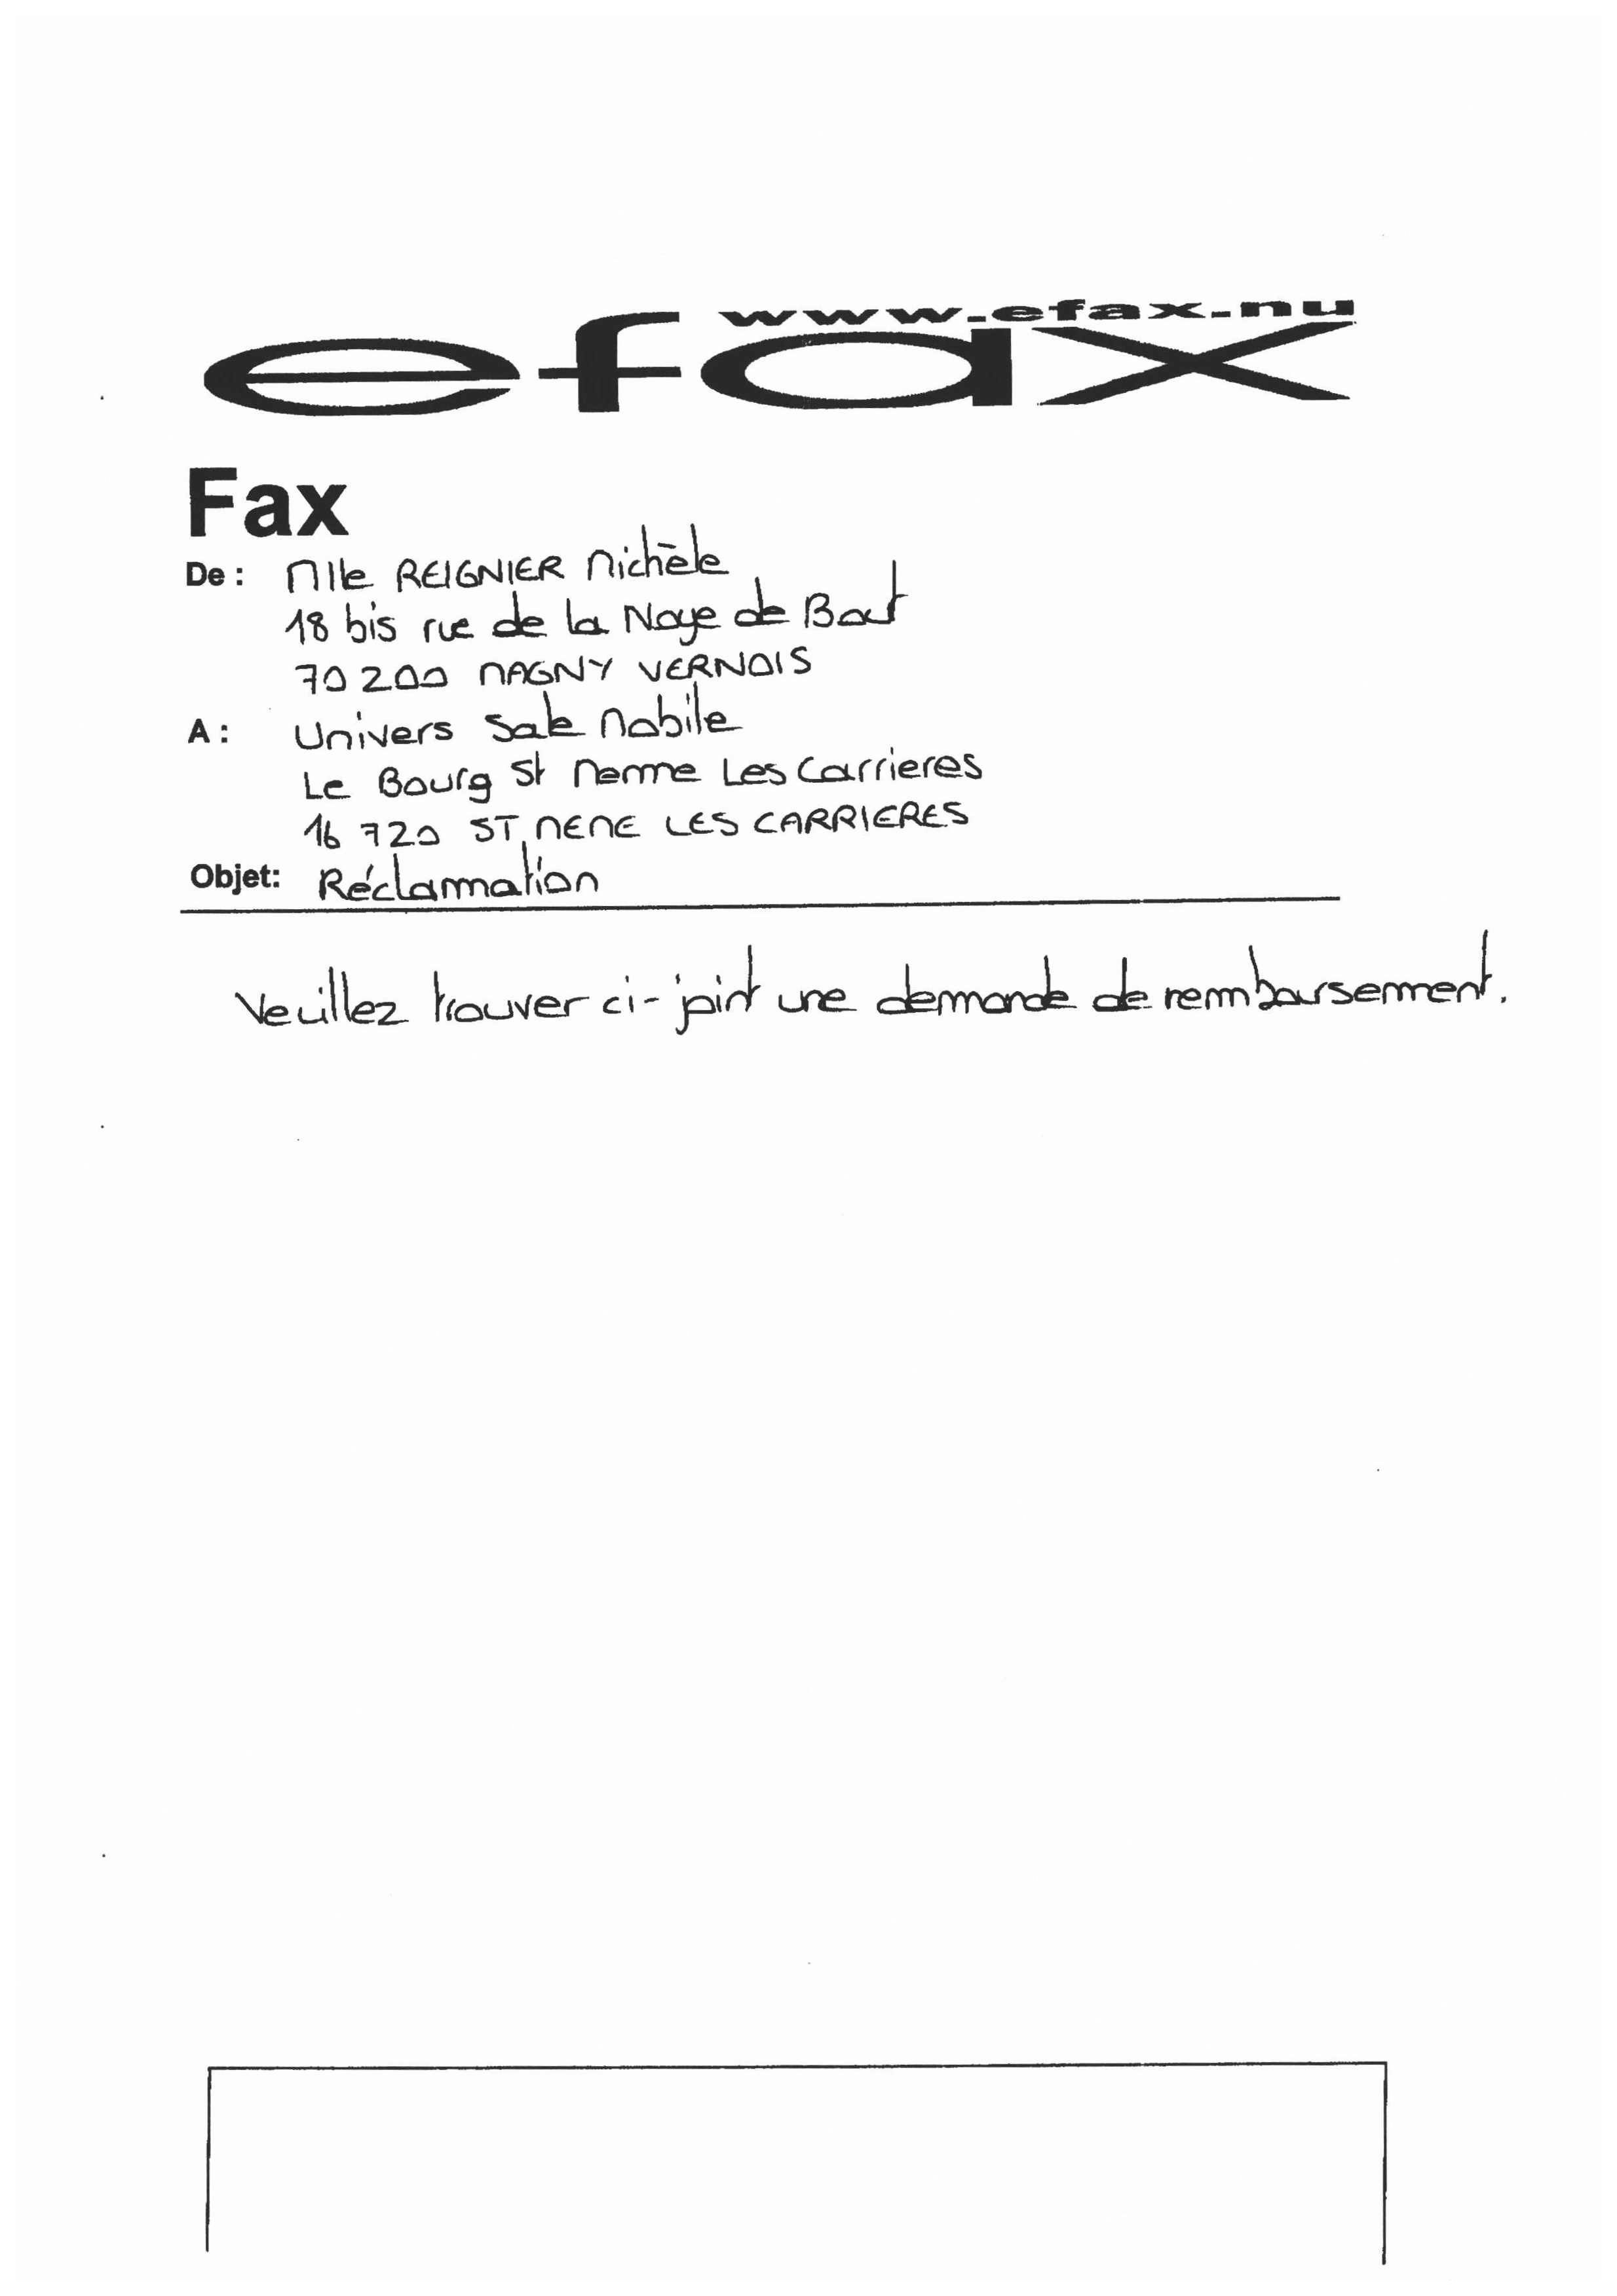 www.efax.nu
efax
Fax
De : Mlle REIGNIER Michèle
18 bis rue de la Noye de Bout
70 200 MAGNY VERNOIS
A : Univers Sale Mobile
Le Bourg St Meme Les Carrieres
16 720 ST MEME LES CARRIERES
Objet: Réclamation
Veuillez trouver ci-joint une demande de remboursement.